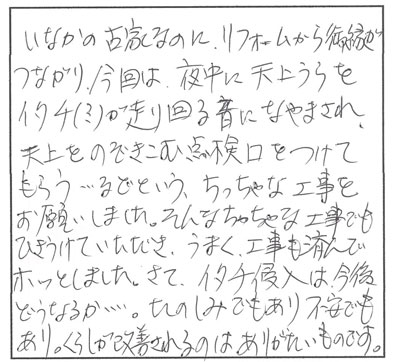 いなかの古家なのに、リフォームから御縁が
つながり、今回は、夜中に天上うらを
イタチ(ミ)が走り回る音になやまされ、
天上をのぞきこむ点検口をつけて
もらう…などという、ちっちゃな工事を
お願いしました。そんなちゃちゃな工事でも
ひきうけていただき、うまく、工事も済んで
ホッとしました。さて、イタチ侵入は、今後
どうなるか…。たのしみでもあり不安でも
あり。くらしが改善されるのはありがたいものです。